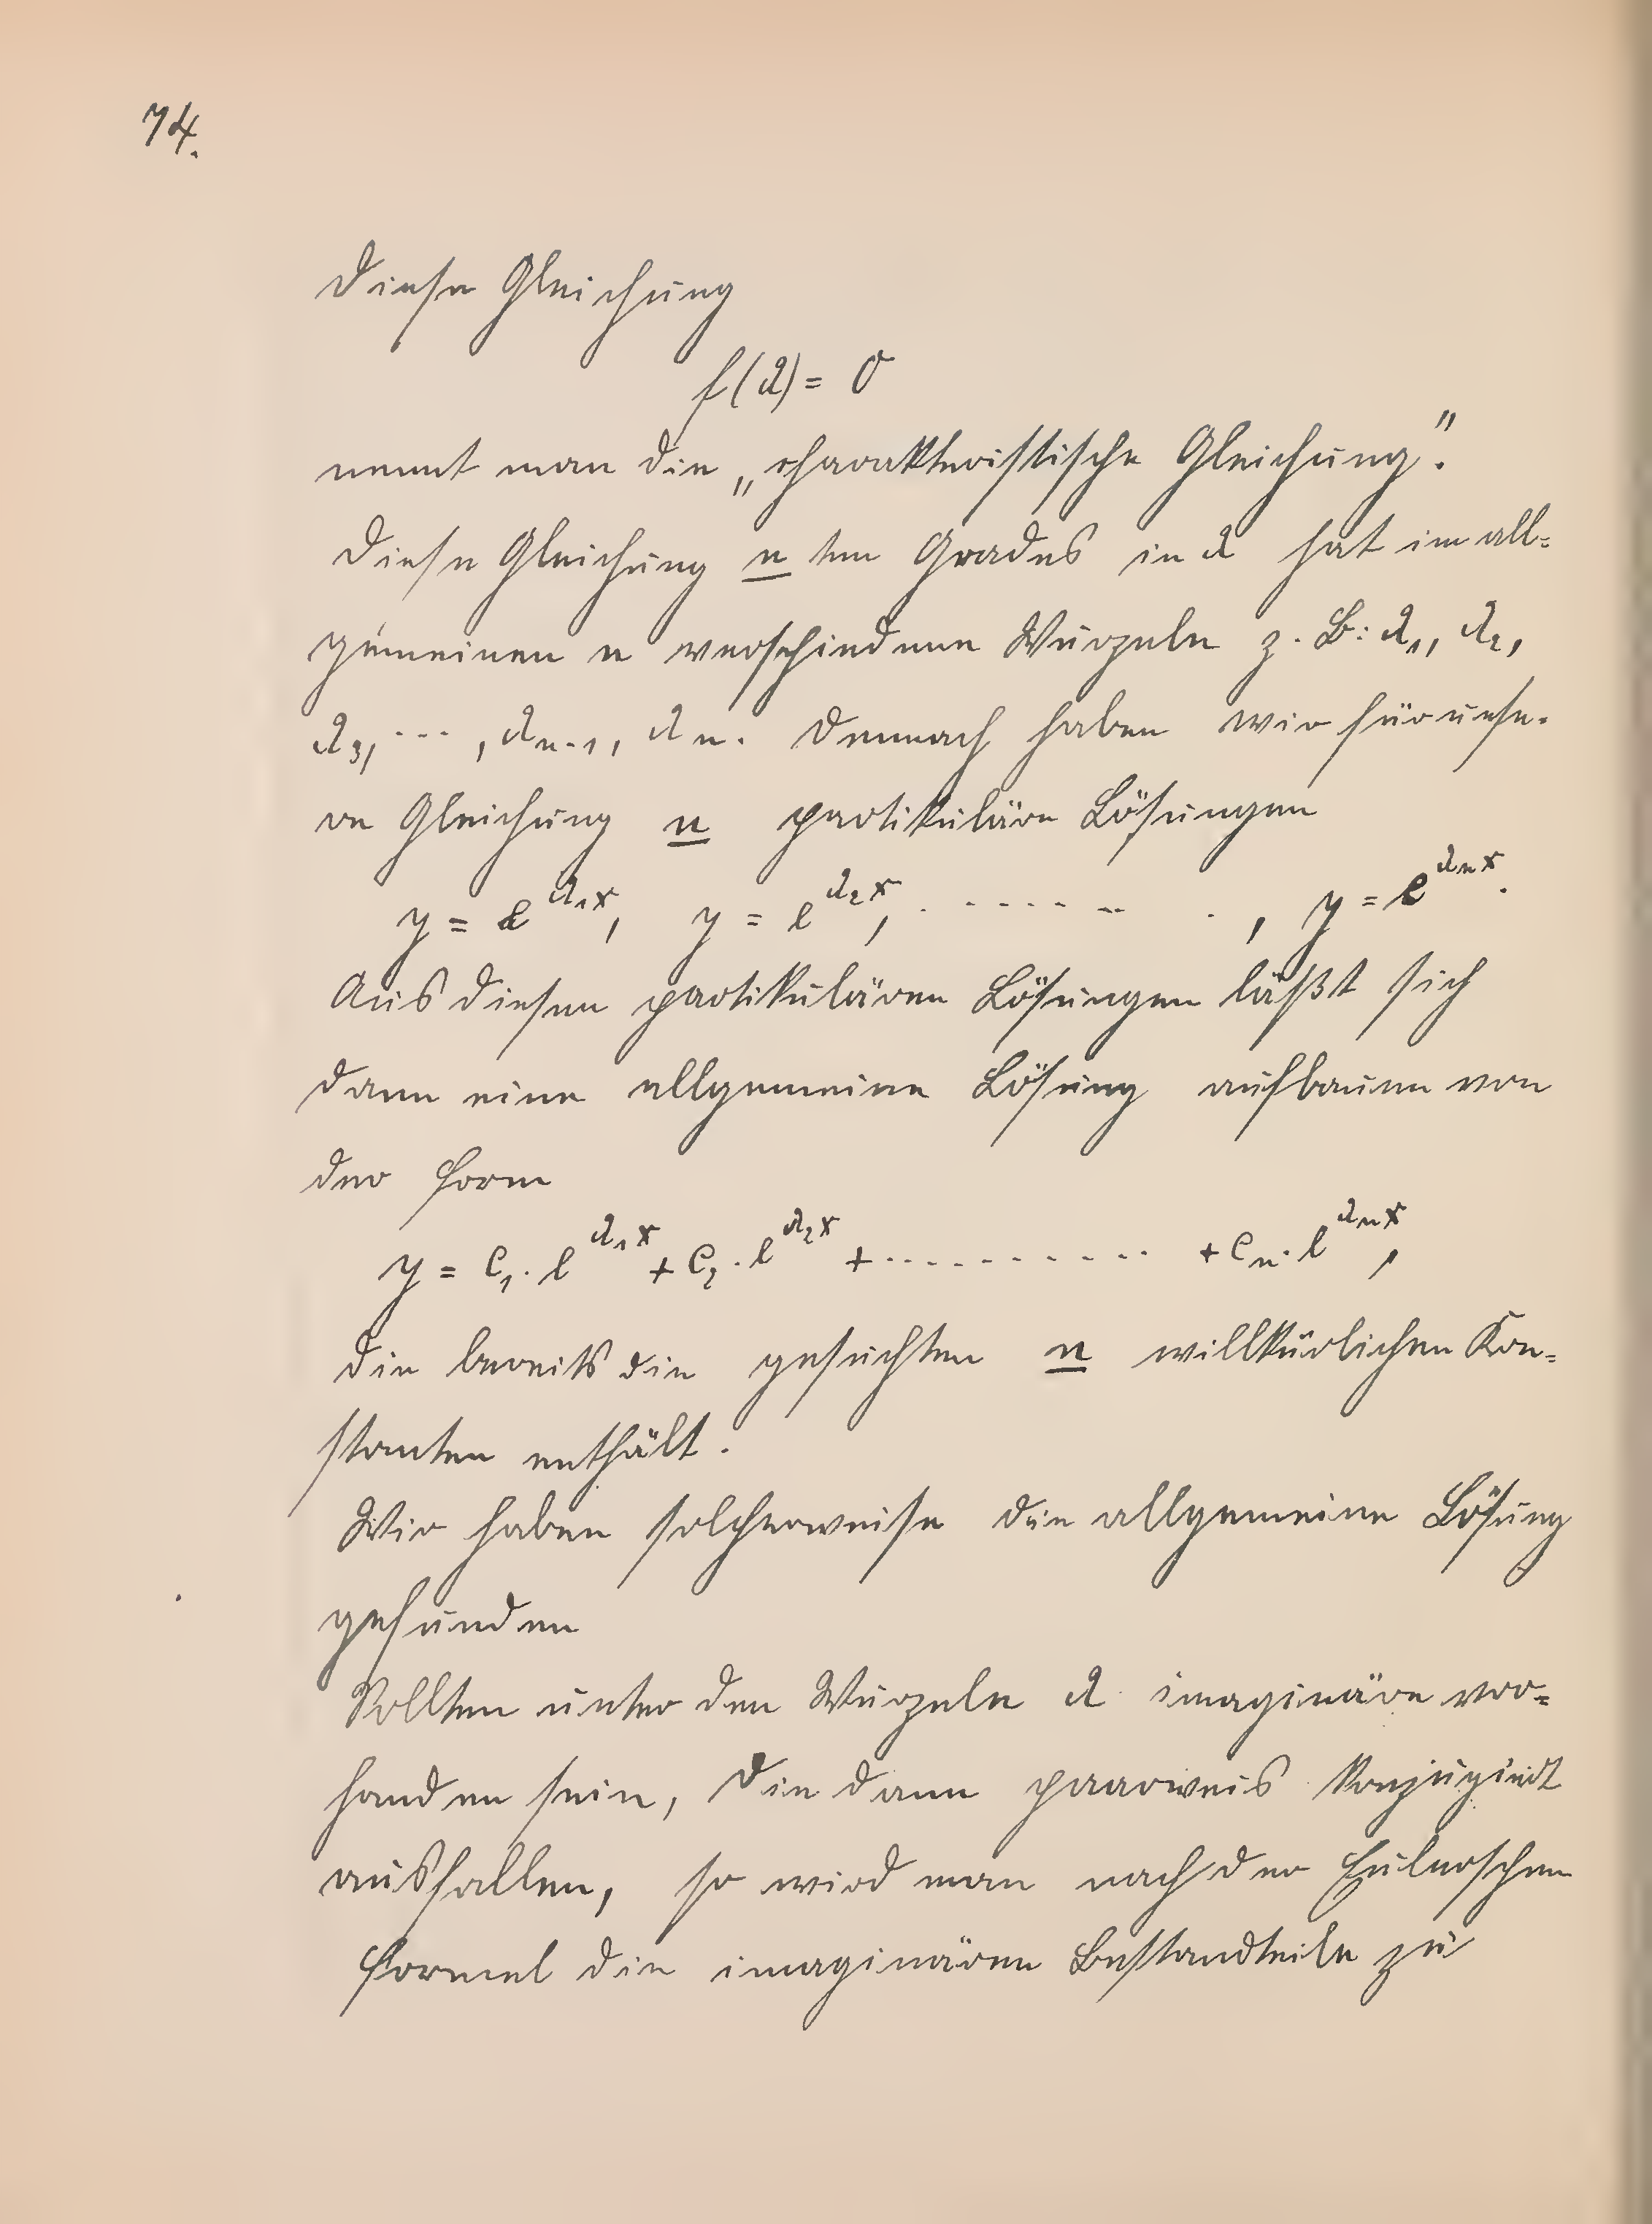 74.
Diese Gleichung
f(λ) = 0
nennt man die „charakteristische Gleichung".
Diese Gleichung n ten Grades in λ hat im all=
gemeinen n verschiedene Wurzeln z. B: λ₁, λ₂,
λ₃, ···, λₙ₋₁, λₙ. Demnach haben wir für unse-
re Gleichung n partikuläre Lösungen
y = e^{λ₁x}, y = e^{λ₂x}, · - - - - - - ·, y = e^{λₙx}.
Aus diesen partikulären Lösungen läßt sich
dann eine allgemeine Lösung aufbauen von
der Form
y = C₁· e^{λ₁x} + C₂· e^{λ₂x} + - - - - - - - - - + Cₙ· e^{λₙx},
die bereits die gesuchten n willkürlichen Kon=
stanten enthält.
Wir haben solcherweise die allgemeine Lösung
gefunden
Sollten unter den Wurzeln λ imaginäre vor=
handen sein, die dann paarweis konjugiert
ausfallen, so wird man nach der Eulerschen
Formel die imaginären Bestandteile zu